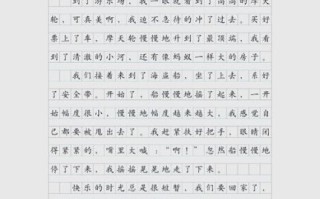 到了游乐场，我一眼就看到了高高的摩天
轮，可真美啊，我迫不急待的冲了过去。买好
票上了车，摩天轮慢慢地升到了最顶端，我看
到了清澈的小河，还有像蚂蚁一样大的房子。
我们接着来到了海盗船，坐了上去，系好
了安全带。开始了，船慢慢地摇了起来，一开
始幅度很小，慢慢地幅度越来越大，我感觉自
己都要被甩出去了。我赶紧扶好把手，眼睛闭
得紧紧的，嘴里大喊：“啊！”忽然船慢慢地
停了下来，我摇摇晃晃地走了下来。
快乐的时光总是很短暂，我们要回家了，